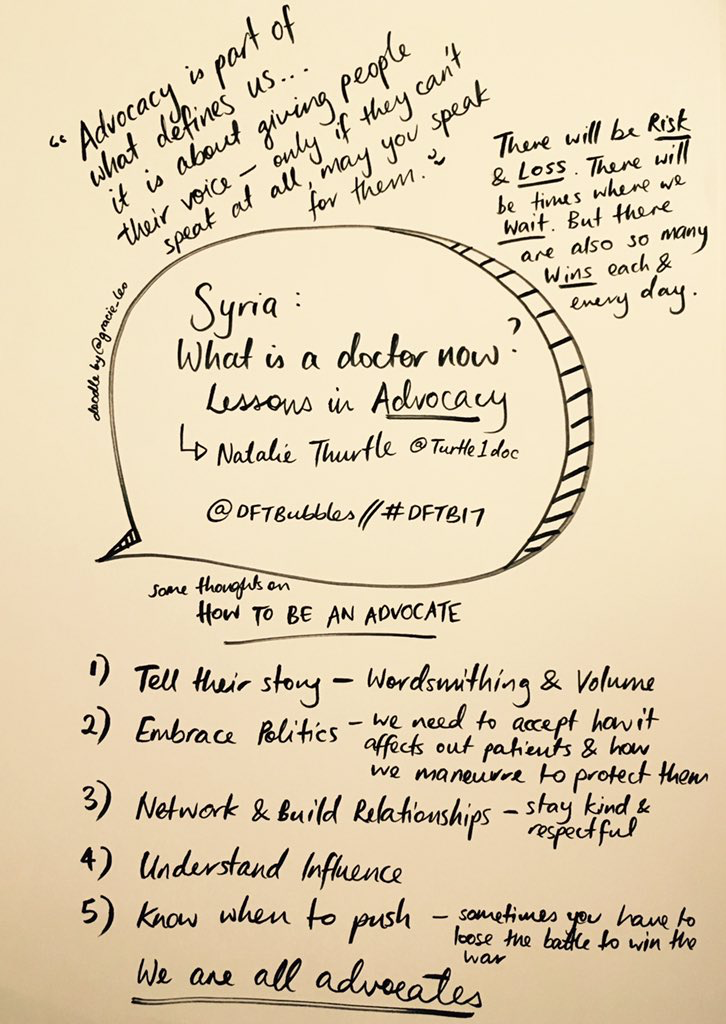 "Advocacy is part of
what defines us...
it is about giving people
their voice – only if they can't
speak at all, may you speak
for them."
There will be Risk
& Loss. There will
be times where we
wait. But there
are also so many
Wins each &
every day.
doodle by @gracie_leo
Syria :
What is a doctor now?
Lessons in Advocacy
↳ Natalie Thurtle @Turtle1doc
@DFTBubbles // #DFTB17
some thoughts on
HOW TO BE AN ADVOCATE
1) Tell their story – Wordsmithing & Volume
2) Embrace Politics – we need to accept how it
affects out patients & how
we maneuvre to protect them
3) Network & Build Relationships – stay kind &
respectful
4) Understand Influence
5) Know when to push – sometimes you have to
loose the battle to win the
war
We are all advocates